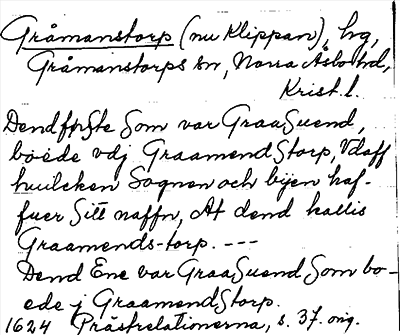 Gråmanstorp (nu Klippan), hrg,
Gråmanstorps sn, Norra Åsbo hd,
Krist. l.
Dend førSte Som var GraaSuend,
boede vdj GraamendStorp, Vdaff
huilcken Sognen och byen haf-
fuer Sitt naffn, At dend kallis
Graamends-torp. ---
Dend Ene var GraaSuend, Som bo-
ede j GraamendStorp.
1624 Prästrelationerna, s. 37. orig.